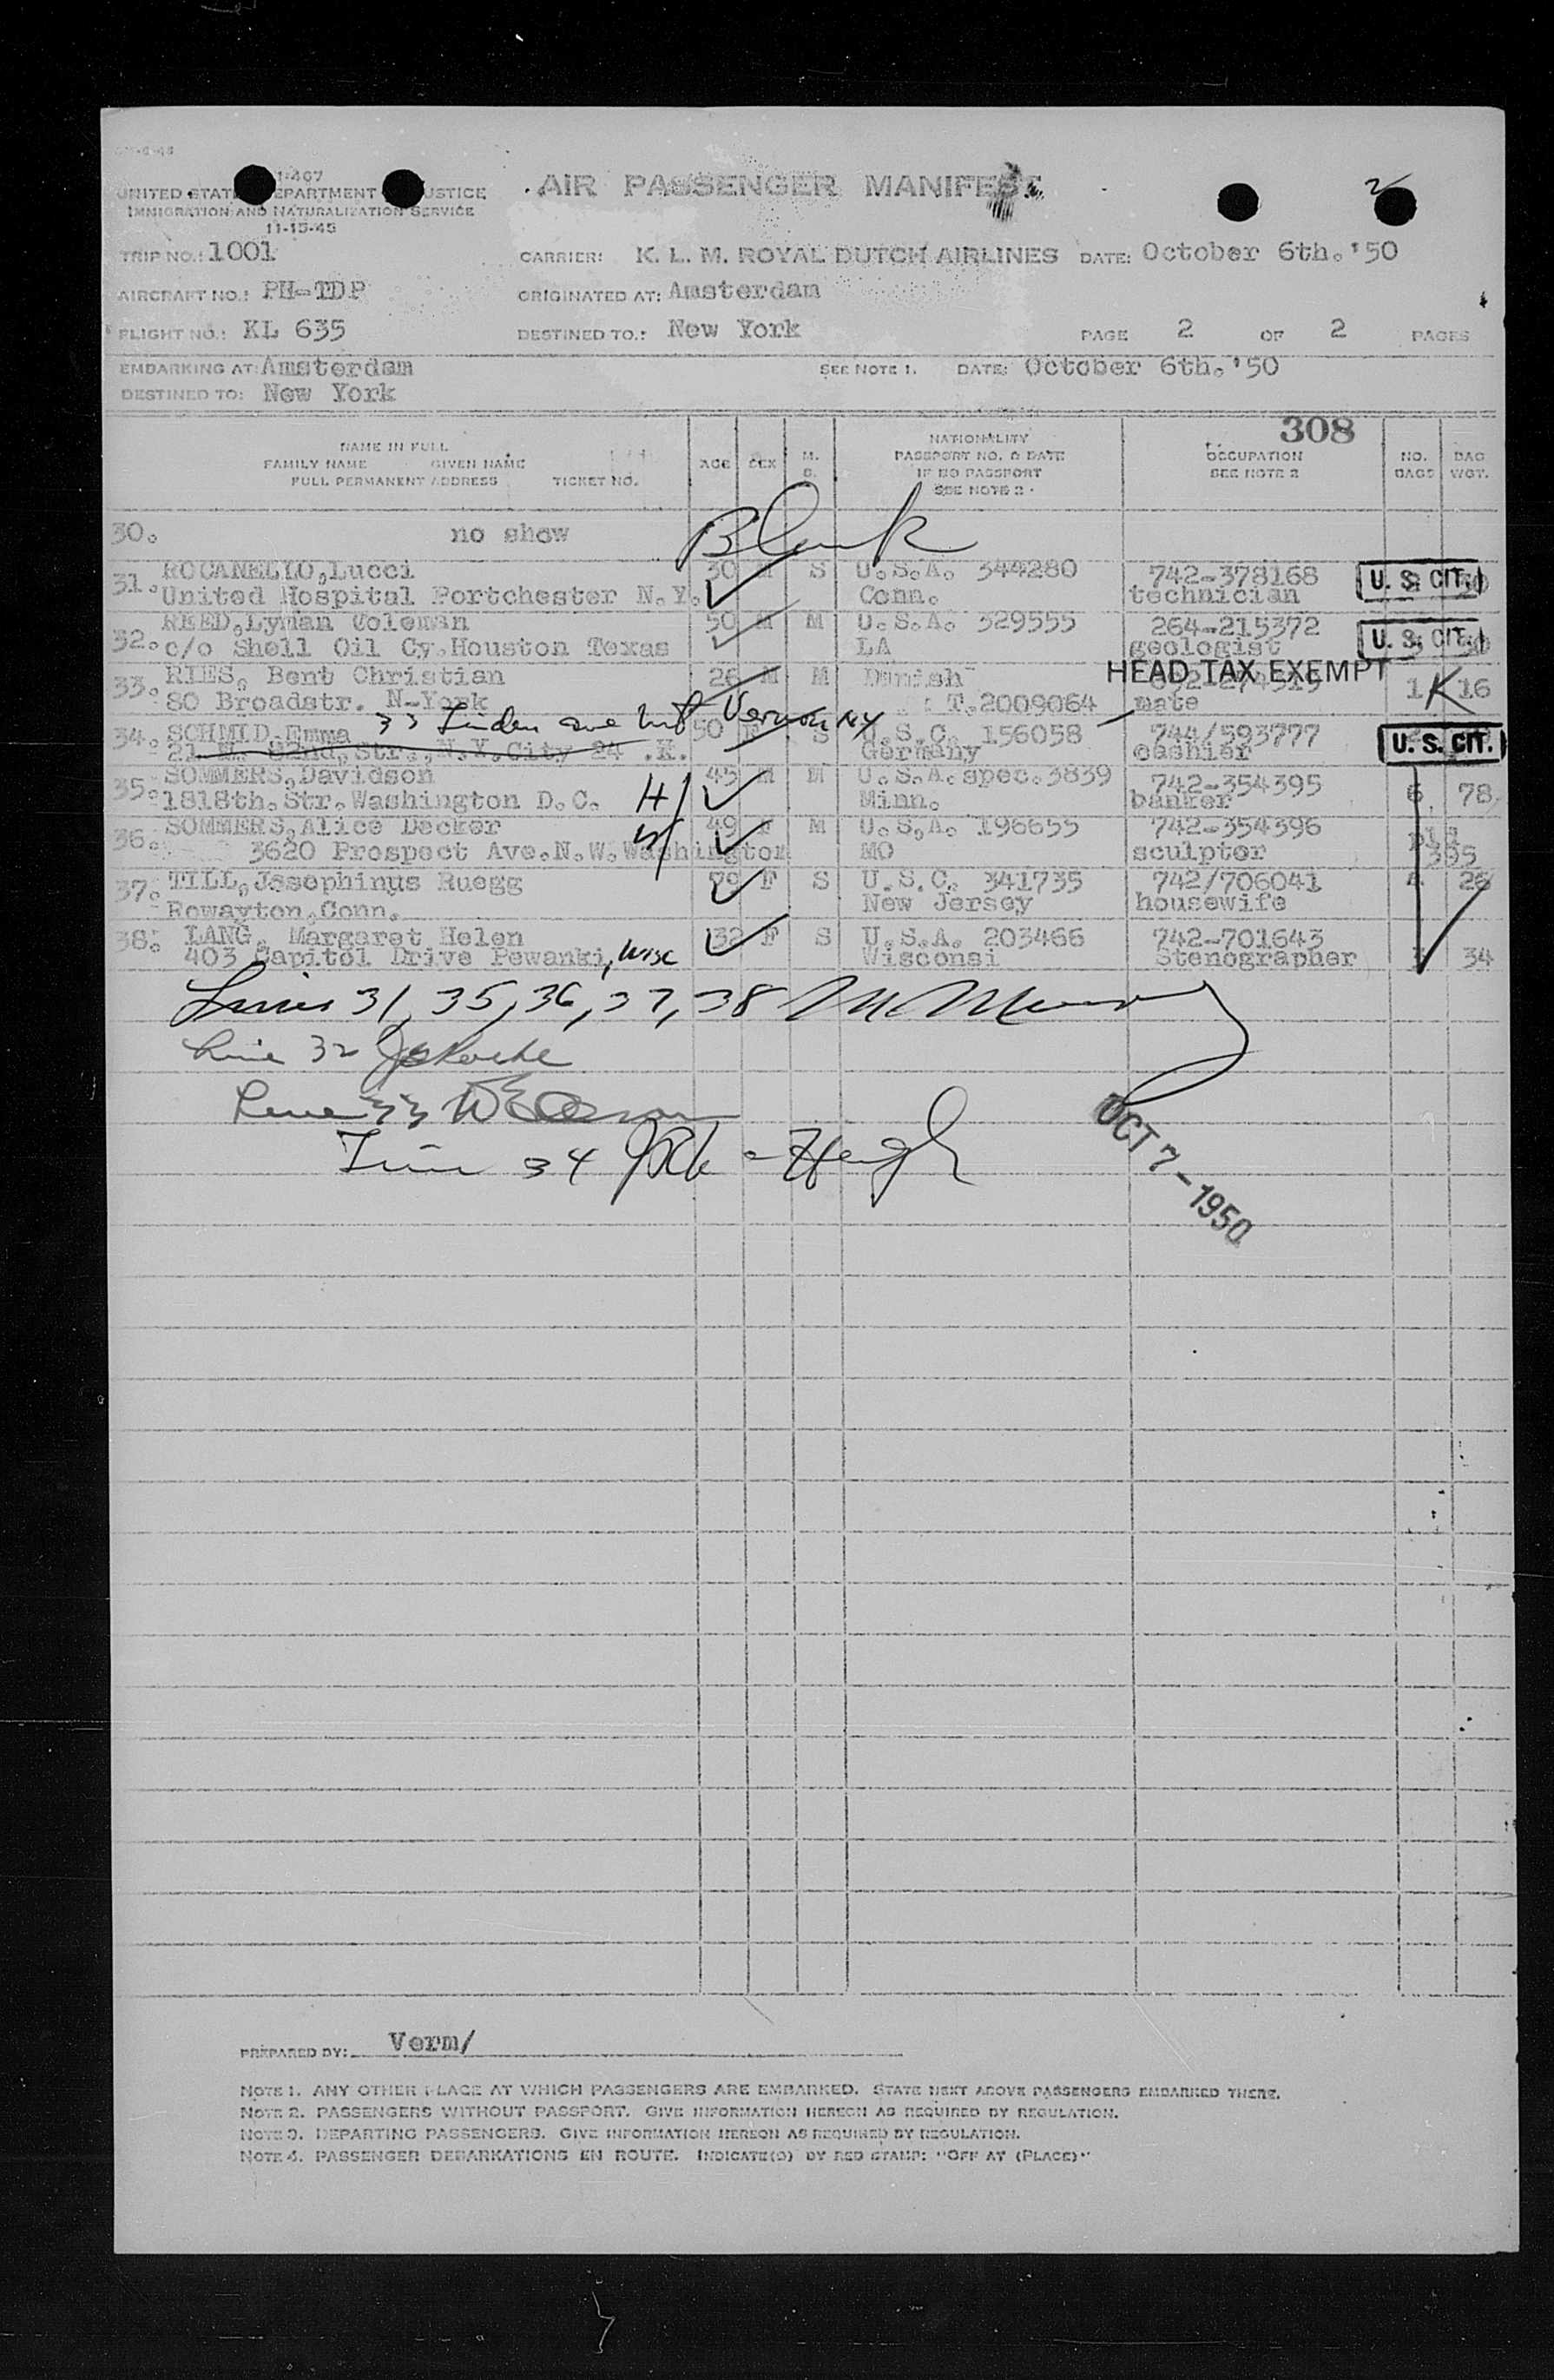 I-407
UNITED STATES DEPARTMENT OF JUSTICE
IMMIGRATION AND NATURALIZATION SERVICE
11-15-45
AIR PASSENGER MANIFEST
2
TRIP NO.: 1001
CARRIER: K. L. M. ROYAL DUTCH AIRLINES DATE: October 6th.'50
AIRCRAFT NO.: PH-TDP
ORIGINATED AT: Amsterdam
FLIGHT NO.: KL 635
DESTINED TO.: New York
PAGE 2 OF 2 PAGES
EMBARKING AT: Amsterdam
SEE NOTE 1. DATE: October 6th.'50
DESTINED TO: New York
308
NAME IN FULL
FAMILY NAME GIVEN NAME
FULL PERMANENT ADDRESS TICKET NO.
AGE SEX M. S.
NATIONALITY
PASSPORT NO. & DATE
IF NO PASSPORT
SEE NOTE 2.
OCCUPATION
SEE NOTE 2
NO. BAGS
BAG WGT.
30. no show Blank
31. ROCANELLO,Lucci 30 M S U.S.A. 344280 742-378168 U. S. CIT.
United Hospital Portchester N.Y. Conn. technician
32. REED,Lyman Coleman 50 M M U.S.A. 329555 264-215372 U. S. CIT.
c/o Shell Oil Cy.Houston Texas LA geologist
HEAD TAX EXEMPT
33. RIES, Bent Christian 26 M M Danish 1 K 16
80 Broadstr. N-York T.2009064 mate
33 Linden ave Mt Vernon NY
34. SCHMID Emma 50 F S U.S.C. 156058 744/593777 U. S. CIT.
21 82nd,Str.,N.Y.City 24 Germany cashier
35. SOMMERS,Davidson H/ 45 M M U.S.A.spec.3839 742-354395
1818th.Str.Washington D.C. Minn. banker 78
36. SOMMERS,Alice Decker W/ 49 F M U.S.A. 196655 742-354396
3620 Prospect Ave.N.W.Washington MO sculptor
37. TILL,Josephinus Ruegg F S U.S.C. 341735 742/706041 26
Rowayton,Conn. New Jersey housewife
38. LANG, Margaret Helen 32 F S U.S.A. 203466 742-701643
403 Capitol Drive Pewanki, Wisc Wisconsi Stenographer 34
Lines 31, 35, 36, 37, 38
Line 32
Line 33
Line 34
OCT 7 - 1950
PREPARED BY: Verm/
NOTE 1. ANY OTHER PLACE AT WHICH PASSENGERS ARE EMBARKED. STATE NEXT ABOVE PASSENGERS EMBARKED THERE.
NOTE 2. PASSENGERS WITHOUT PASSPORT. GIVE INFORMATION HEREON AS REQUIRED BY REGULATION.
NOTE 3. DEPARTING PASSENGERS. GIVE INFORMATION HEREON AS REQUIRED BY REGULATION.
NOTE 4. PASSENGER DEBARKATIONS EN ROUTE. INDICATE(D) BY RED STAMP: "OFF AT (PLACE)"